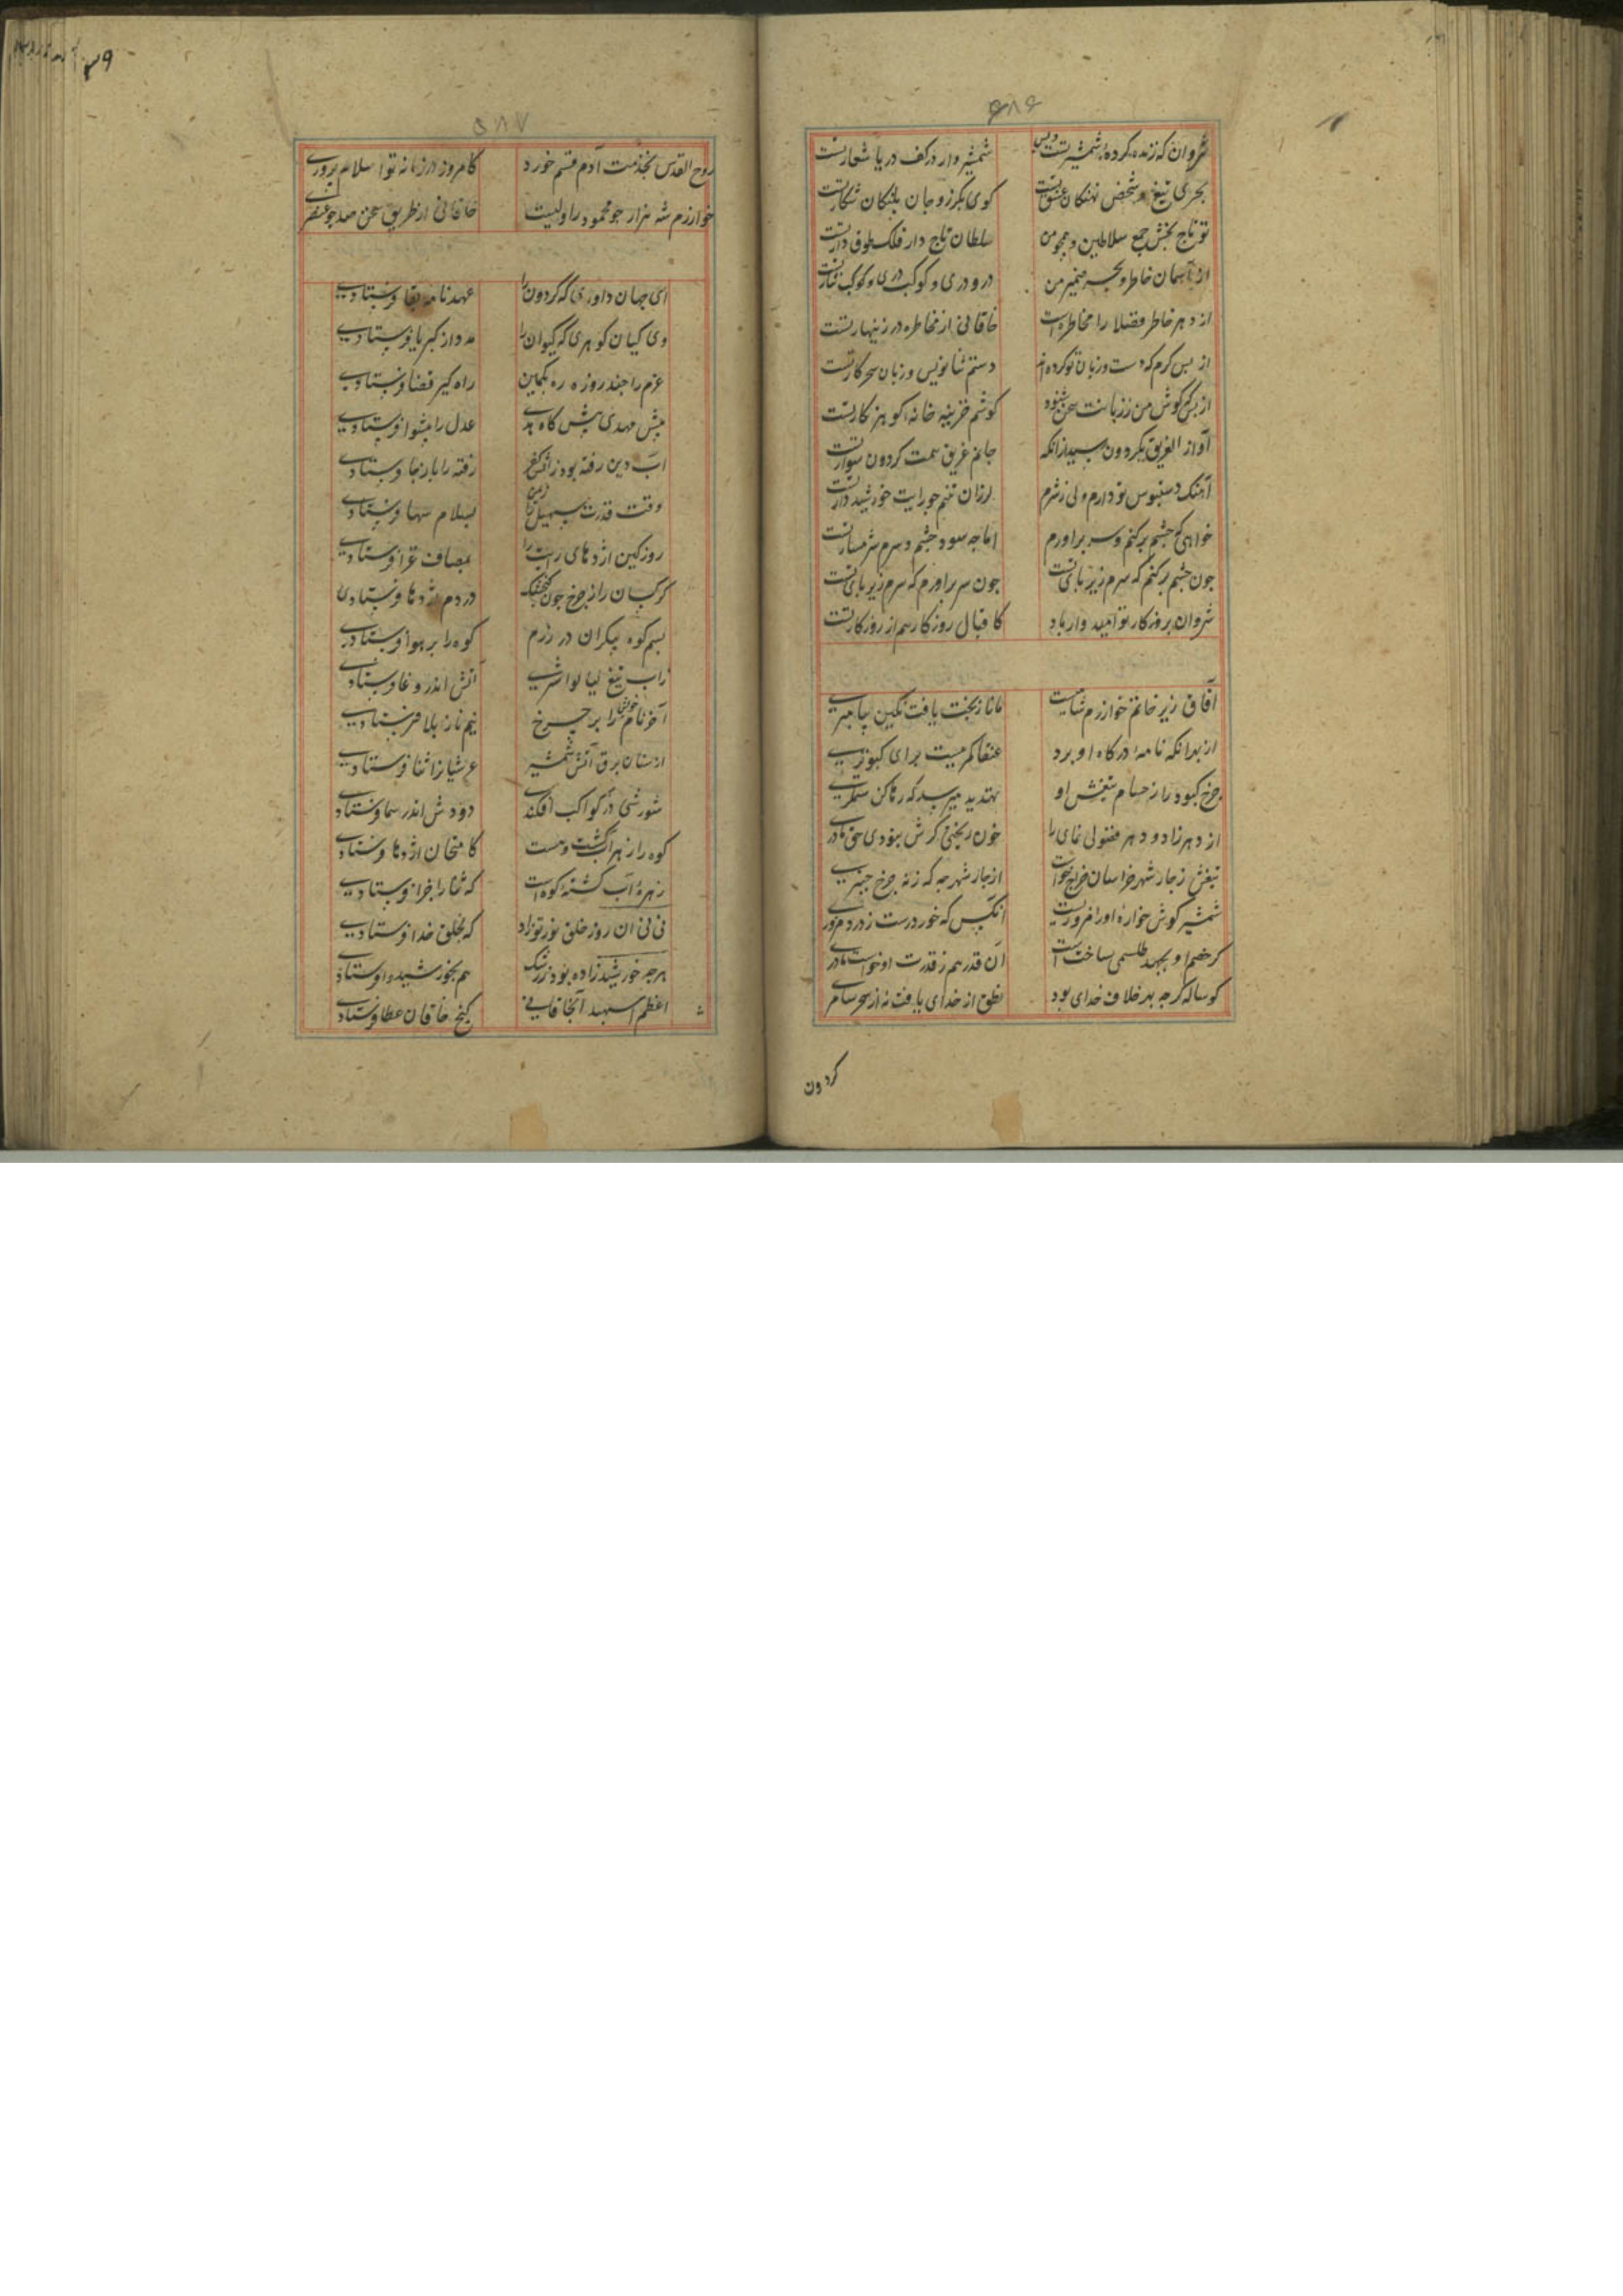 ۶۸۶
شروان که زنده کرده شمشیر تست و بس شمشیروار در کف دریا شعار تست
بحری بتیغ و شخص نهنکان غریق تست کوی بکرز و جان پلنکان شکار تست
تو تاج بخش جمع سلاطین و همچو من سلطان تاج دار فلک طوق دار تست
از آسمان خاطر و بحر ضمیر من در و دری و کوکب دری و کوکب نثار تست
از دهر خاطر فضلا را مخاطره است خاقانی از مخاطره در زینهار تست
از بس کرم که دست و زبان تو کرده اند دستم ثنا نویس و زبان سحر کار تست
از بس که کوش من ز زبانت سخن شنود کوشم خزینه خانه کوهر نکار تست
آواز الغریق بکردون رسید از انکه جانم غریق همت کردون سوار تست
آهنک دستبوس تو دارم ولی ز شرم لرزان تنم چو رایت خورشید دار تست
خواهی که چشم برکنم و سر براورم اما چه سود چشم و سرم شرمسار تست
چون چشم برکنم که سرم زیر پای تست چون سر براورم که سرم زیر پای تست
شروان بروزکار تو امیدوار باد کاقبال روزکار هم از روزکار تست
آفاق زیر خاتم خوارزم شاهیست مانا ز بخت یافت نکین پیامبری
از بدانکه نامه درکاه او برد عنقا کمر ببست برای کبوتری
چرخ کبود را ز حسام بنفش او تهدید میرسد که رها کن ستمکری
از دهر زاد و دهر فضولی نمای را خون ریختی کرش نبودی حق مادری
تیغش ز چار شهر خراسان خراج خواست از چار شهر چه که ز نه چرخ چنبری
شمشیر کوش خواره او را مزوریست آنکس که خورد رست ز درد مزوری
کر خصم او بجهد طلسمی بساخت است آن قدر هم ز قدرت او خواست مادری
کوساله کرچه بد خلاف خدای بود نطق از خدای یافت نه از سحر سامری
کردون
۵۸۷
روح القدس بخدمت آدم قسم خورد کامروز در زمانه تو اسلام پروری
خوارزم شه هزار چو محمود را ولیست خاقانی از طریق سخن صد چو عنصری
ای جهان داوری که کردون را عهدنامه بقا فرستادی
وی کیان کوهری که کیوان را مدد از کبریا فرستادی
عزم را چند روزه ره بکمین راه کیر قضا فرستادی
پیش مهدی پیش کاه هدی عدل را پیشوا فرستادی
آب دین رفته بود ز آتش کفر رفته را باز جا فرستادی
وقت قدرت سهیل را ز یمن بسلام سها فرستادی
روز کین اژدهای رایت را بمصاف غزا فرستادی
کرکسان را ز چرخ چون کنجشک در دم اژدها فرستادی
بسم کوه پیکران در رزم کوه را بر هوا فرستادی
زاب تیغ لیالواشیری آتش اندر وغا فرستادی
آخر نام خویش را بر چرخ نیم نار از بلا فرستادی
از سنان برق آتش شمشیر عرشیانرا ثنا فرستادی
شورشی در کواکب افکندی دودش اندر سما فرستادی
کوه را زهر آب کشت و ببست کامتحان اژدها فرستادی
زهره آب کشته کوه است که ثنا را جزا فرستادی
نی نی ان روز خلق نور تو زاد که بخلق خدا فرستادی
هرچه خورشید زاده بود ز رشک هم بخورشید وا فرستادی
اعظم اسپهبدا بخاقانی کنج خاقان عطا فرستادی